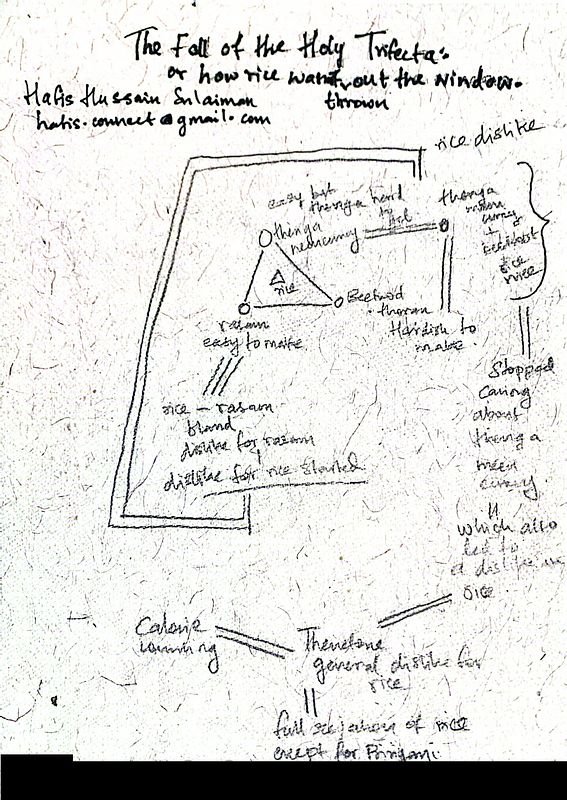 The Fall of the Holy Trifecta:
or how rice went out the window.
thrown
Hafis Hussain Sulaiman
hafis.connect@gmail.com
rice dislike
easy but
thenga hard
to
thenga
meencurry
rice
Beetroot
thoran
rasam
easy to make
thenga
curry
+
Beetroot
rice
Hardish to
make
rice - rasam
bland
dislike for rasam
dislike for rice started
Stopped
caring
about
thenga
meen
curry
which also
led to
a dislike in
rice
Calorie
counning
Therefore
general dislike for
rice
full rejection of rice
except for Biriyani